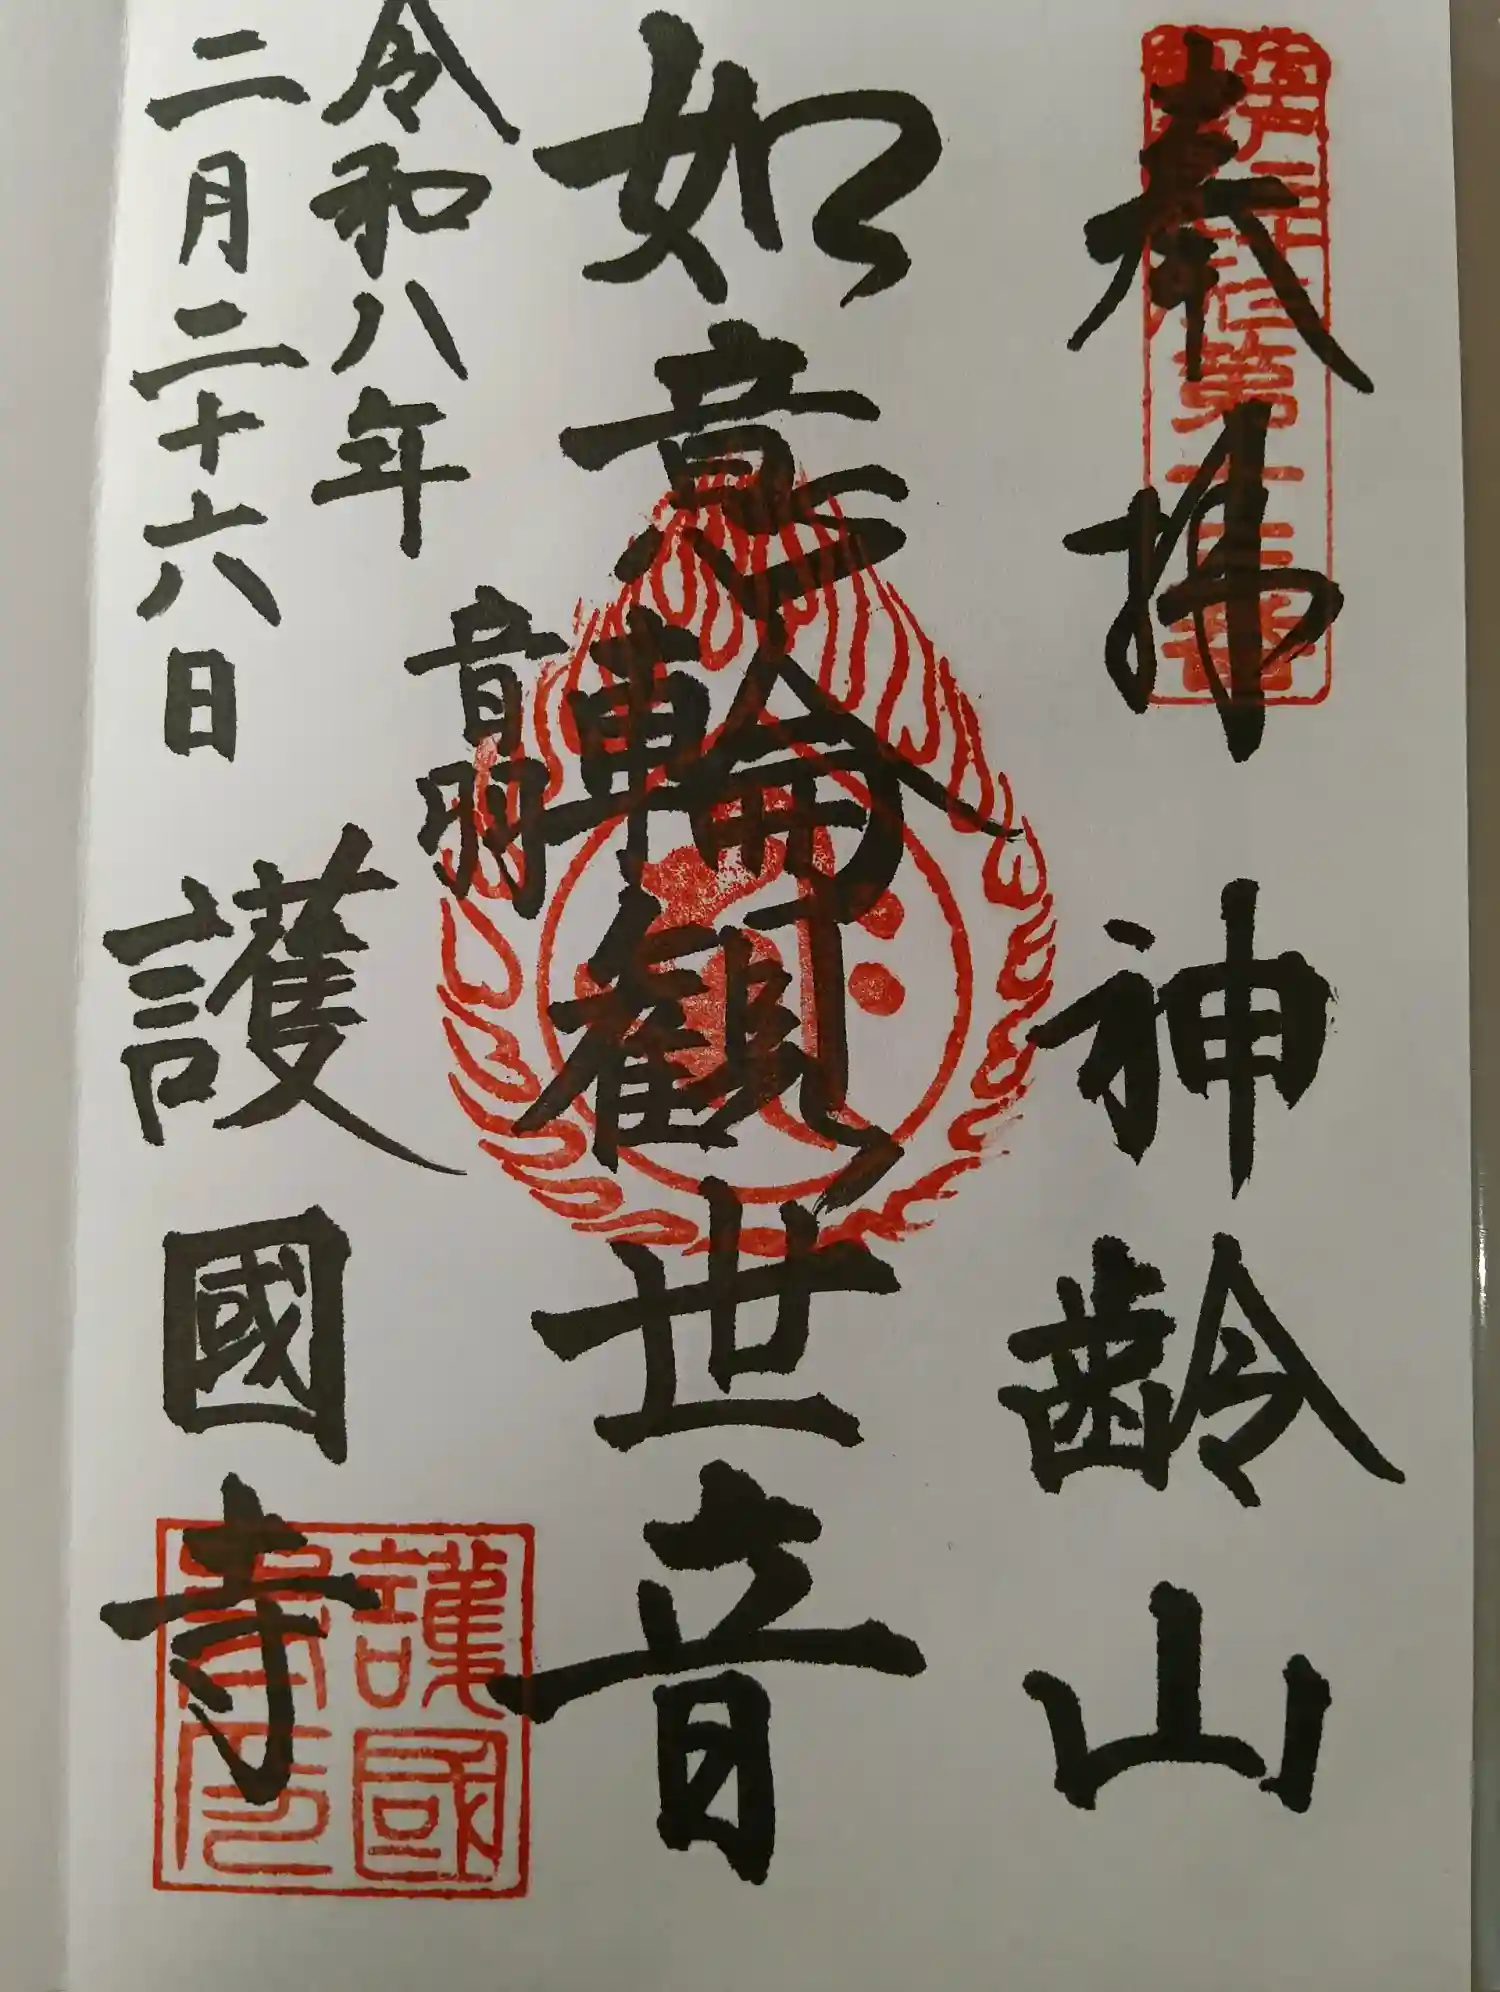 奉拝
神齢山
如意輪観世音
音羽
令和八年
二月二十六日
護國寺
護國
寺印